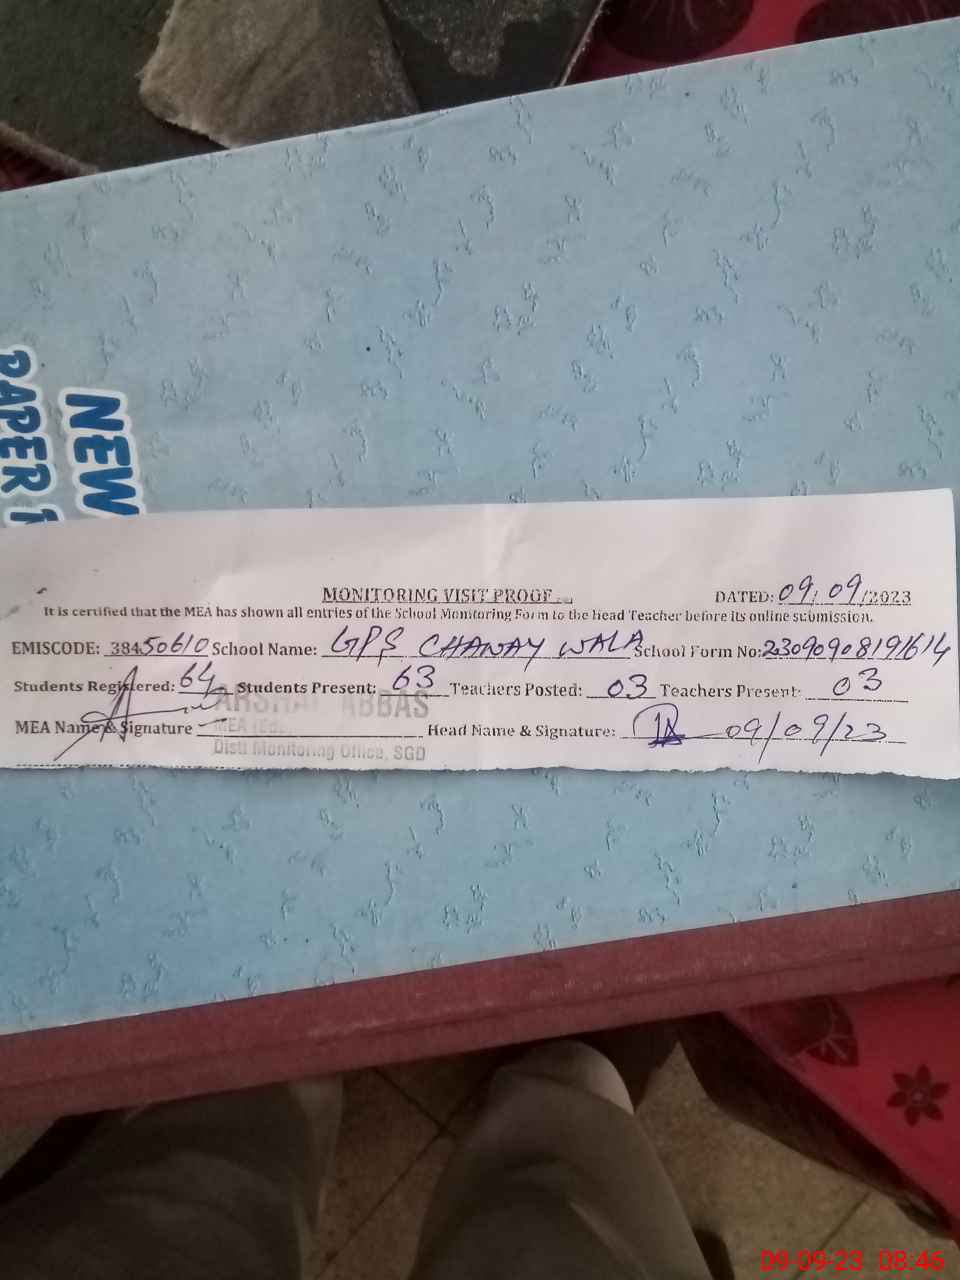 NEW
PAPER
MONITORING VISIT PROOF
DATED: 09/09/2023
It is certified that the MEA has shown all entries of the School Monitoring Form to the Head Teacher before its online submission.
EMISCODE: 38450610 School Name: GPS CHANAY WALA School Form No: 23090908191614
Students Registered: 64 Students Present: 63 Teachers Posted: 03 Teachers Present: 03
ABBAS
MEA Name & Signature Head Name & Signature: 09/09/23
MEA
Distt Monitoring Office, SGD
09-09-23 08:46